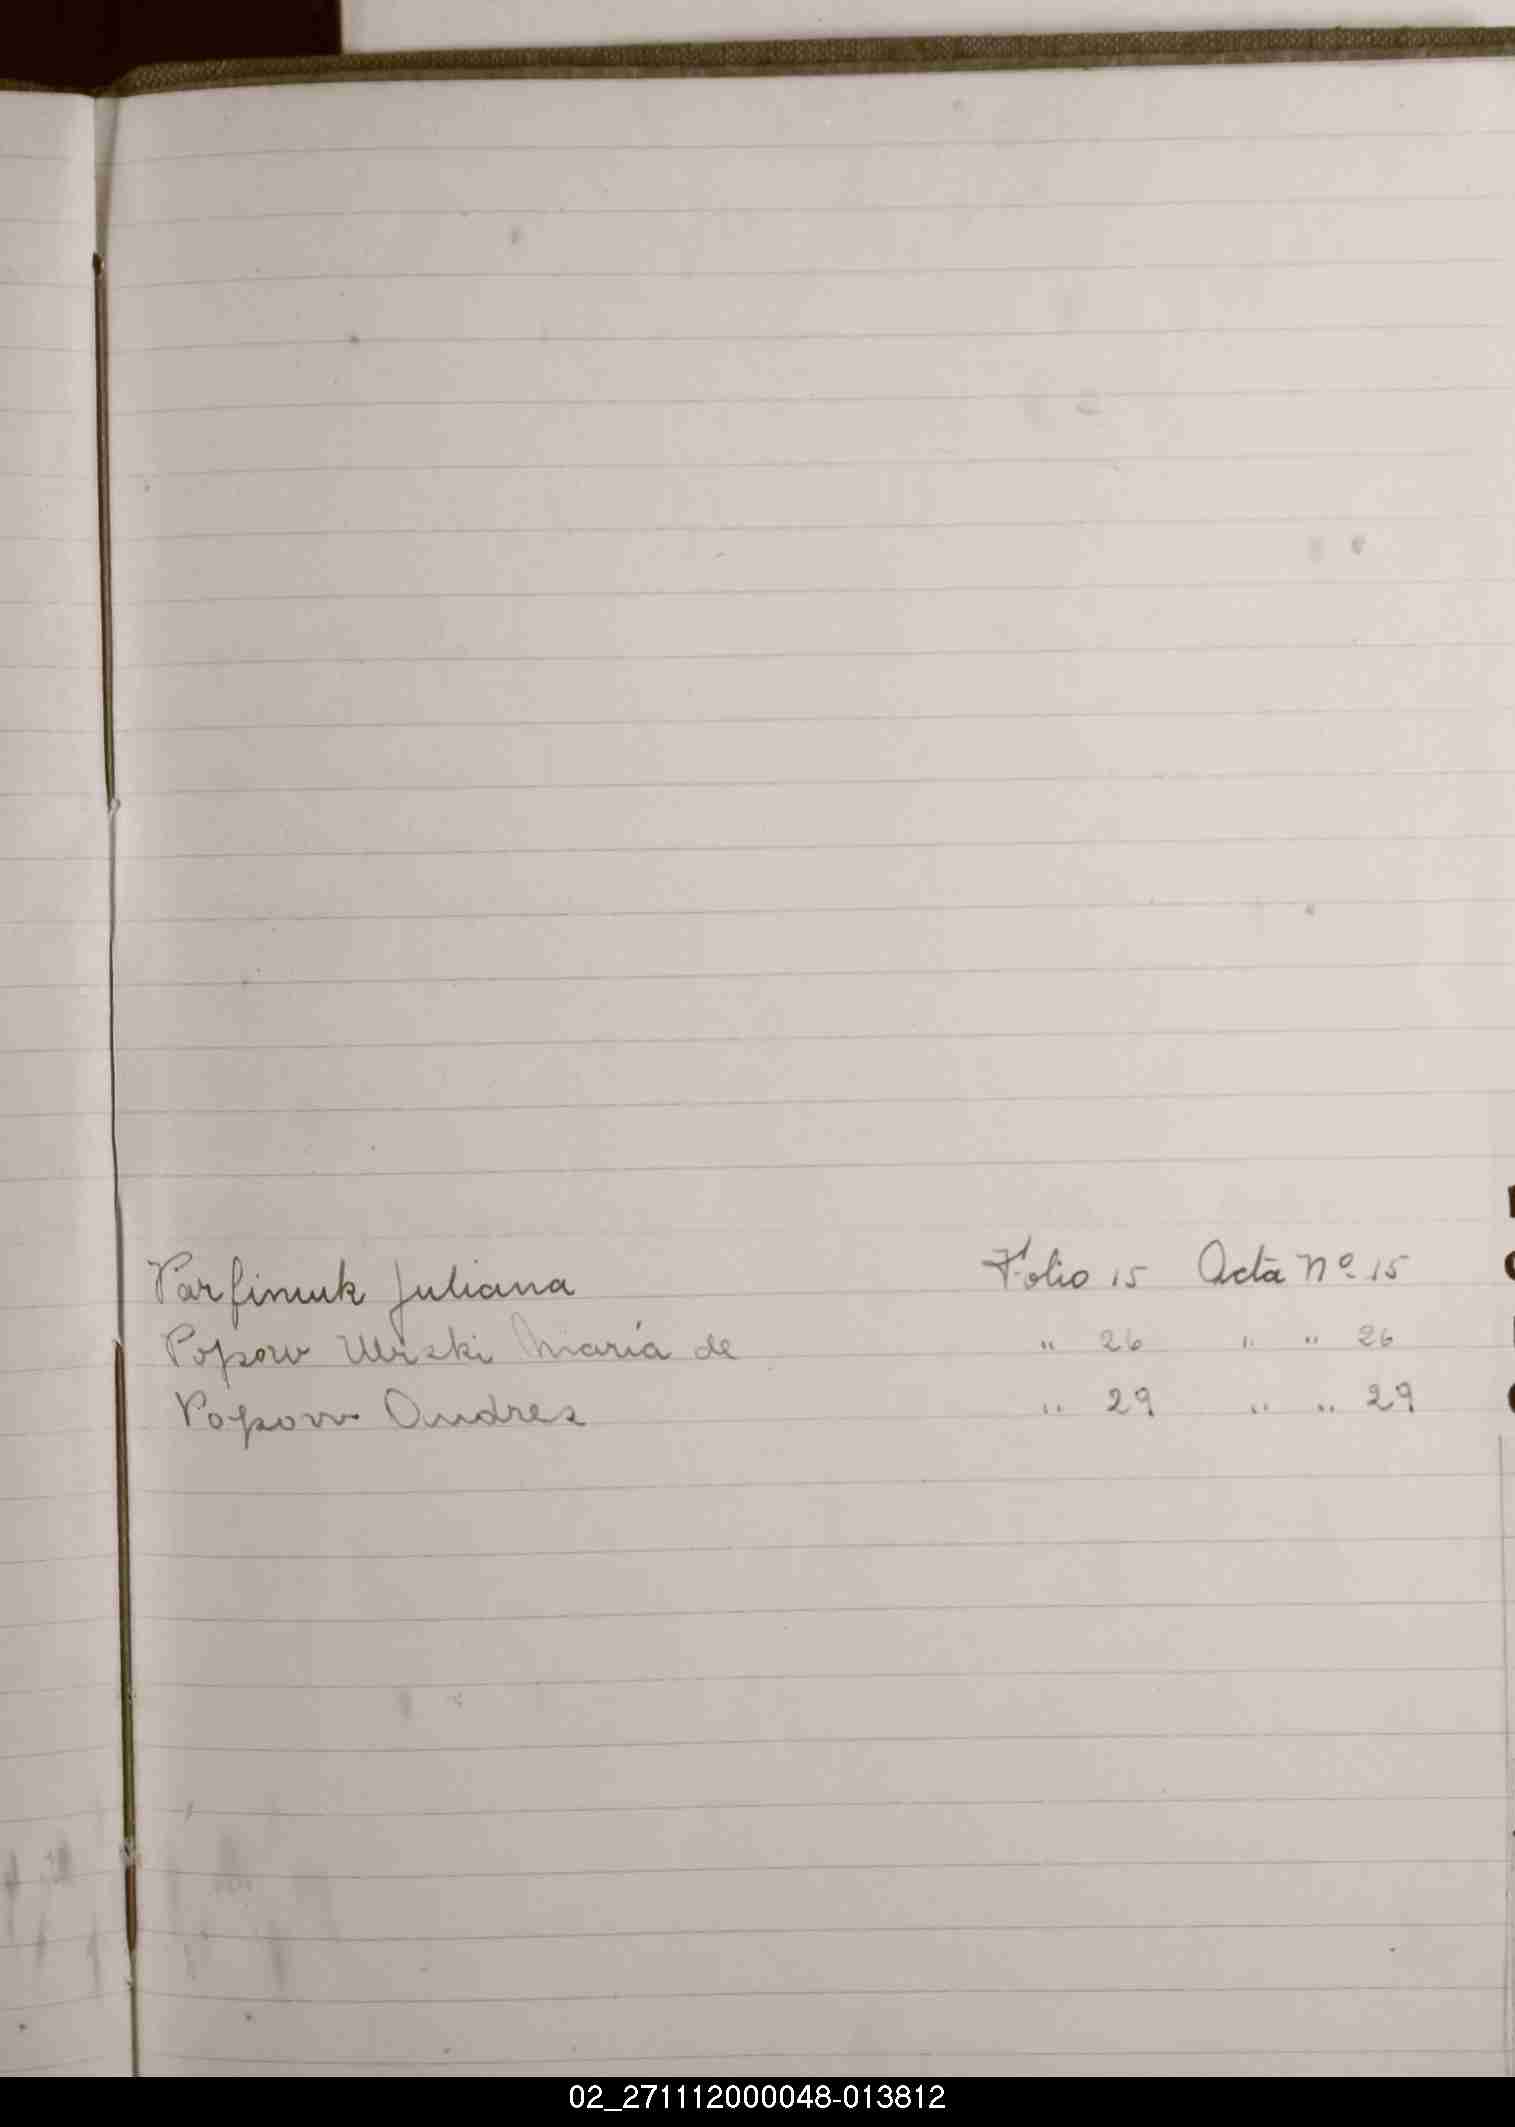 Parfiniuk Juliana Folio 15 Acta Nº 15
Popow María de " 26 " " 26
Popow Andres " 29 " " 29
02_271112000048-013812